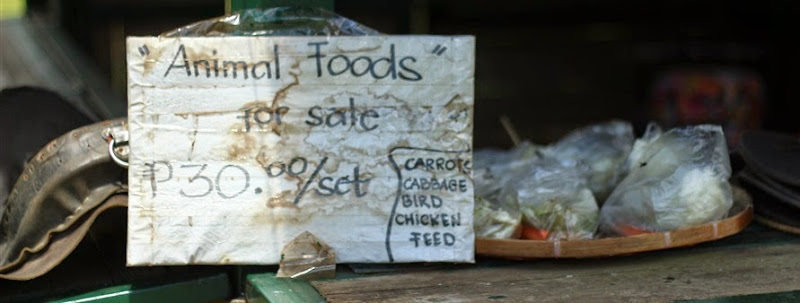 "Animal Foods"
for sale
₱30.00/set
CARROTS
CABBAGE
BIRD
CHICKEN
FEED